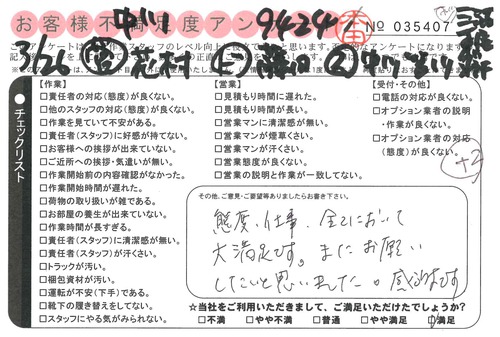 お客様不満足度アンケート
中川
9424
本田
No 035407
3/26
チェックリスト
【作業】
□責任者の対応(態度)が良くない。
□他のスタッフの対応(態度)が良くない。
□作業を見ていて不安がある。
□責任者(スタッフ)に好感が持てない。
□お客様への挨拶が出来ていない。
□ご近所への挨拶・気遣いが無い。
□作業開始前の内容確認がなかった。
□作業開始時間が遅れた。
□荷物の取り扱いが雑である。
□お部屋の養生が出来ていない。
□作業時間が長すぎる。
□責任者(スタッフ)に清潔感が無い。
□責任者(スタッフ)が汗くさい。
□トラックが汚い。
□梱包資材が汚い。
□運転が不安(下手)である。
□靴下の履き替えをしてない。
□スタッフにやる気がみられない。
【営業】
□見積もり時間に遅れた。
□見積もり時間が長い。
□営業マンに清潔感が無い。
□営業マンが煙草くさい。
□営業マンが汗くさい。
□営業態度が良くない。
□営業の説明と作業が一致してない。
【受付・その他】
□電話の対応が良くない。
□オプション業者の説明
・作業が良くない。
□オプション業者の対応
(態度)が良くない。
+3
その他、ご意見・ご要望等ありましたらお書き下さい。
態度、仕事、全てにおいて
大満足です。またお願い
したいと思いました。感謝です
☆当社をご利用いただきまして、ご満足いただけたでしょうか?
□不満 □やや不満 □普通 □やや満足 □満足